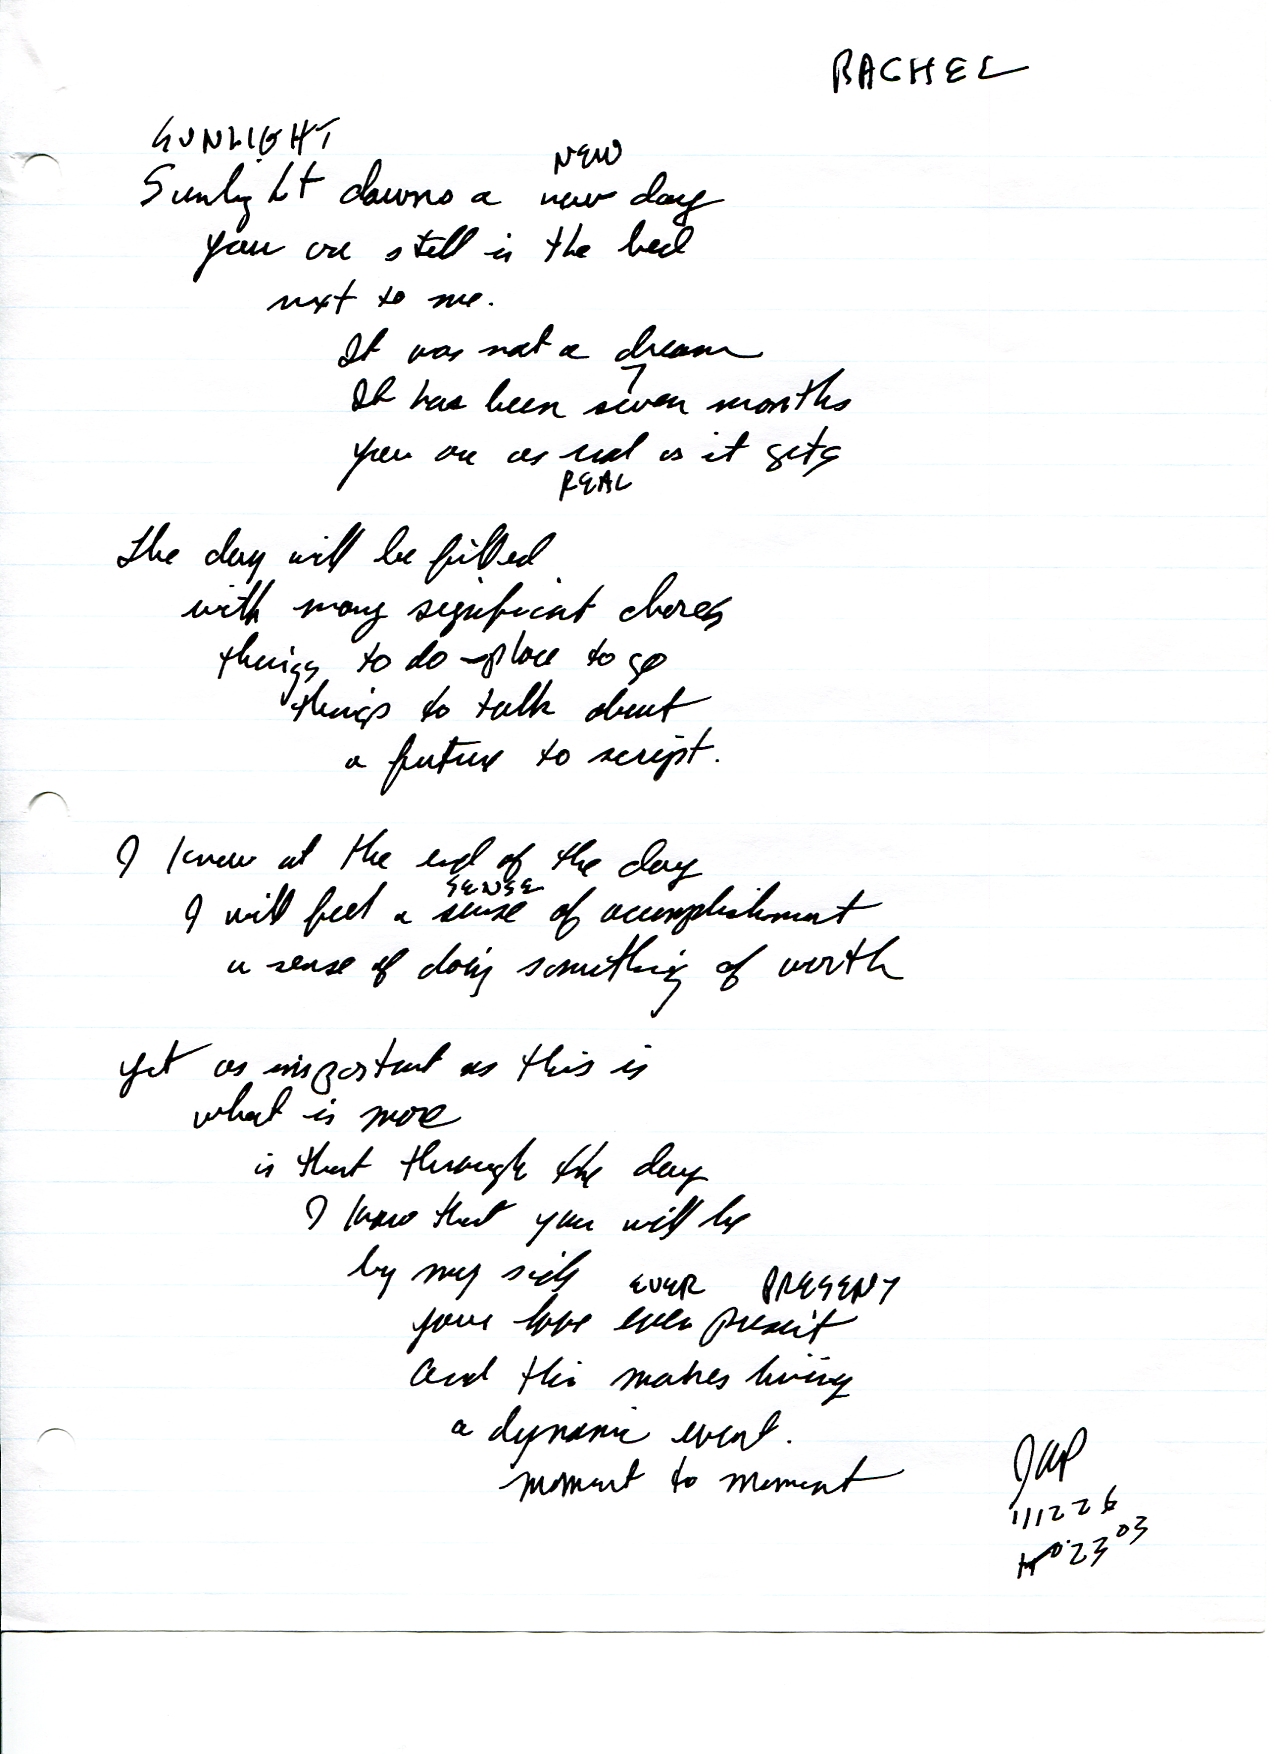 RACHEL
SUNLIGHT
NEW
Sunlight dawns a new day
you are still in the bed
next to me.
It was not a dream
7
It has been seven months
you are as real as it gets
REAL
the day will be filled
with many significant chores
things to do - place to go
things to talk about
a future to script.
I know at the end of the day
SENSE
I will feel a sense of accomplishment
a sense of doing something of worth
yet as important as this is
what is more
is that through the day
I know that you will be
by my side
EVER PRESENT
your love ever present
and this makes living
a dynamic event.
moment to moment
JAP
111226
023 03